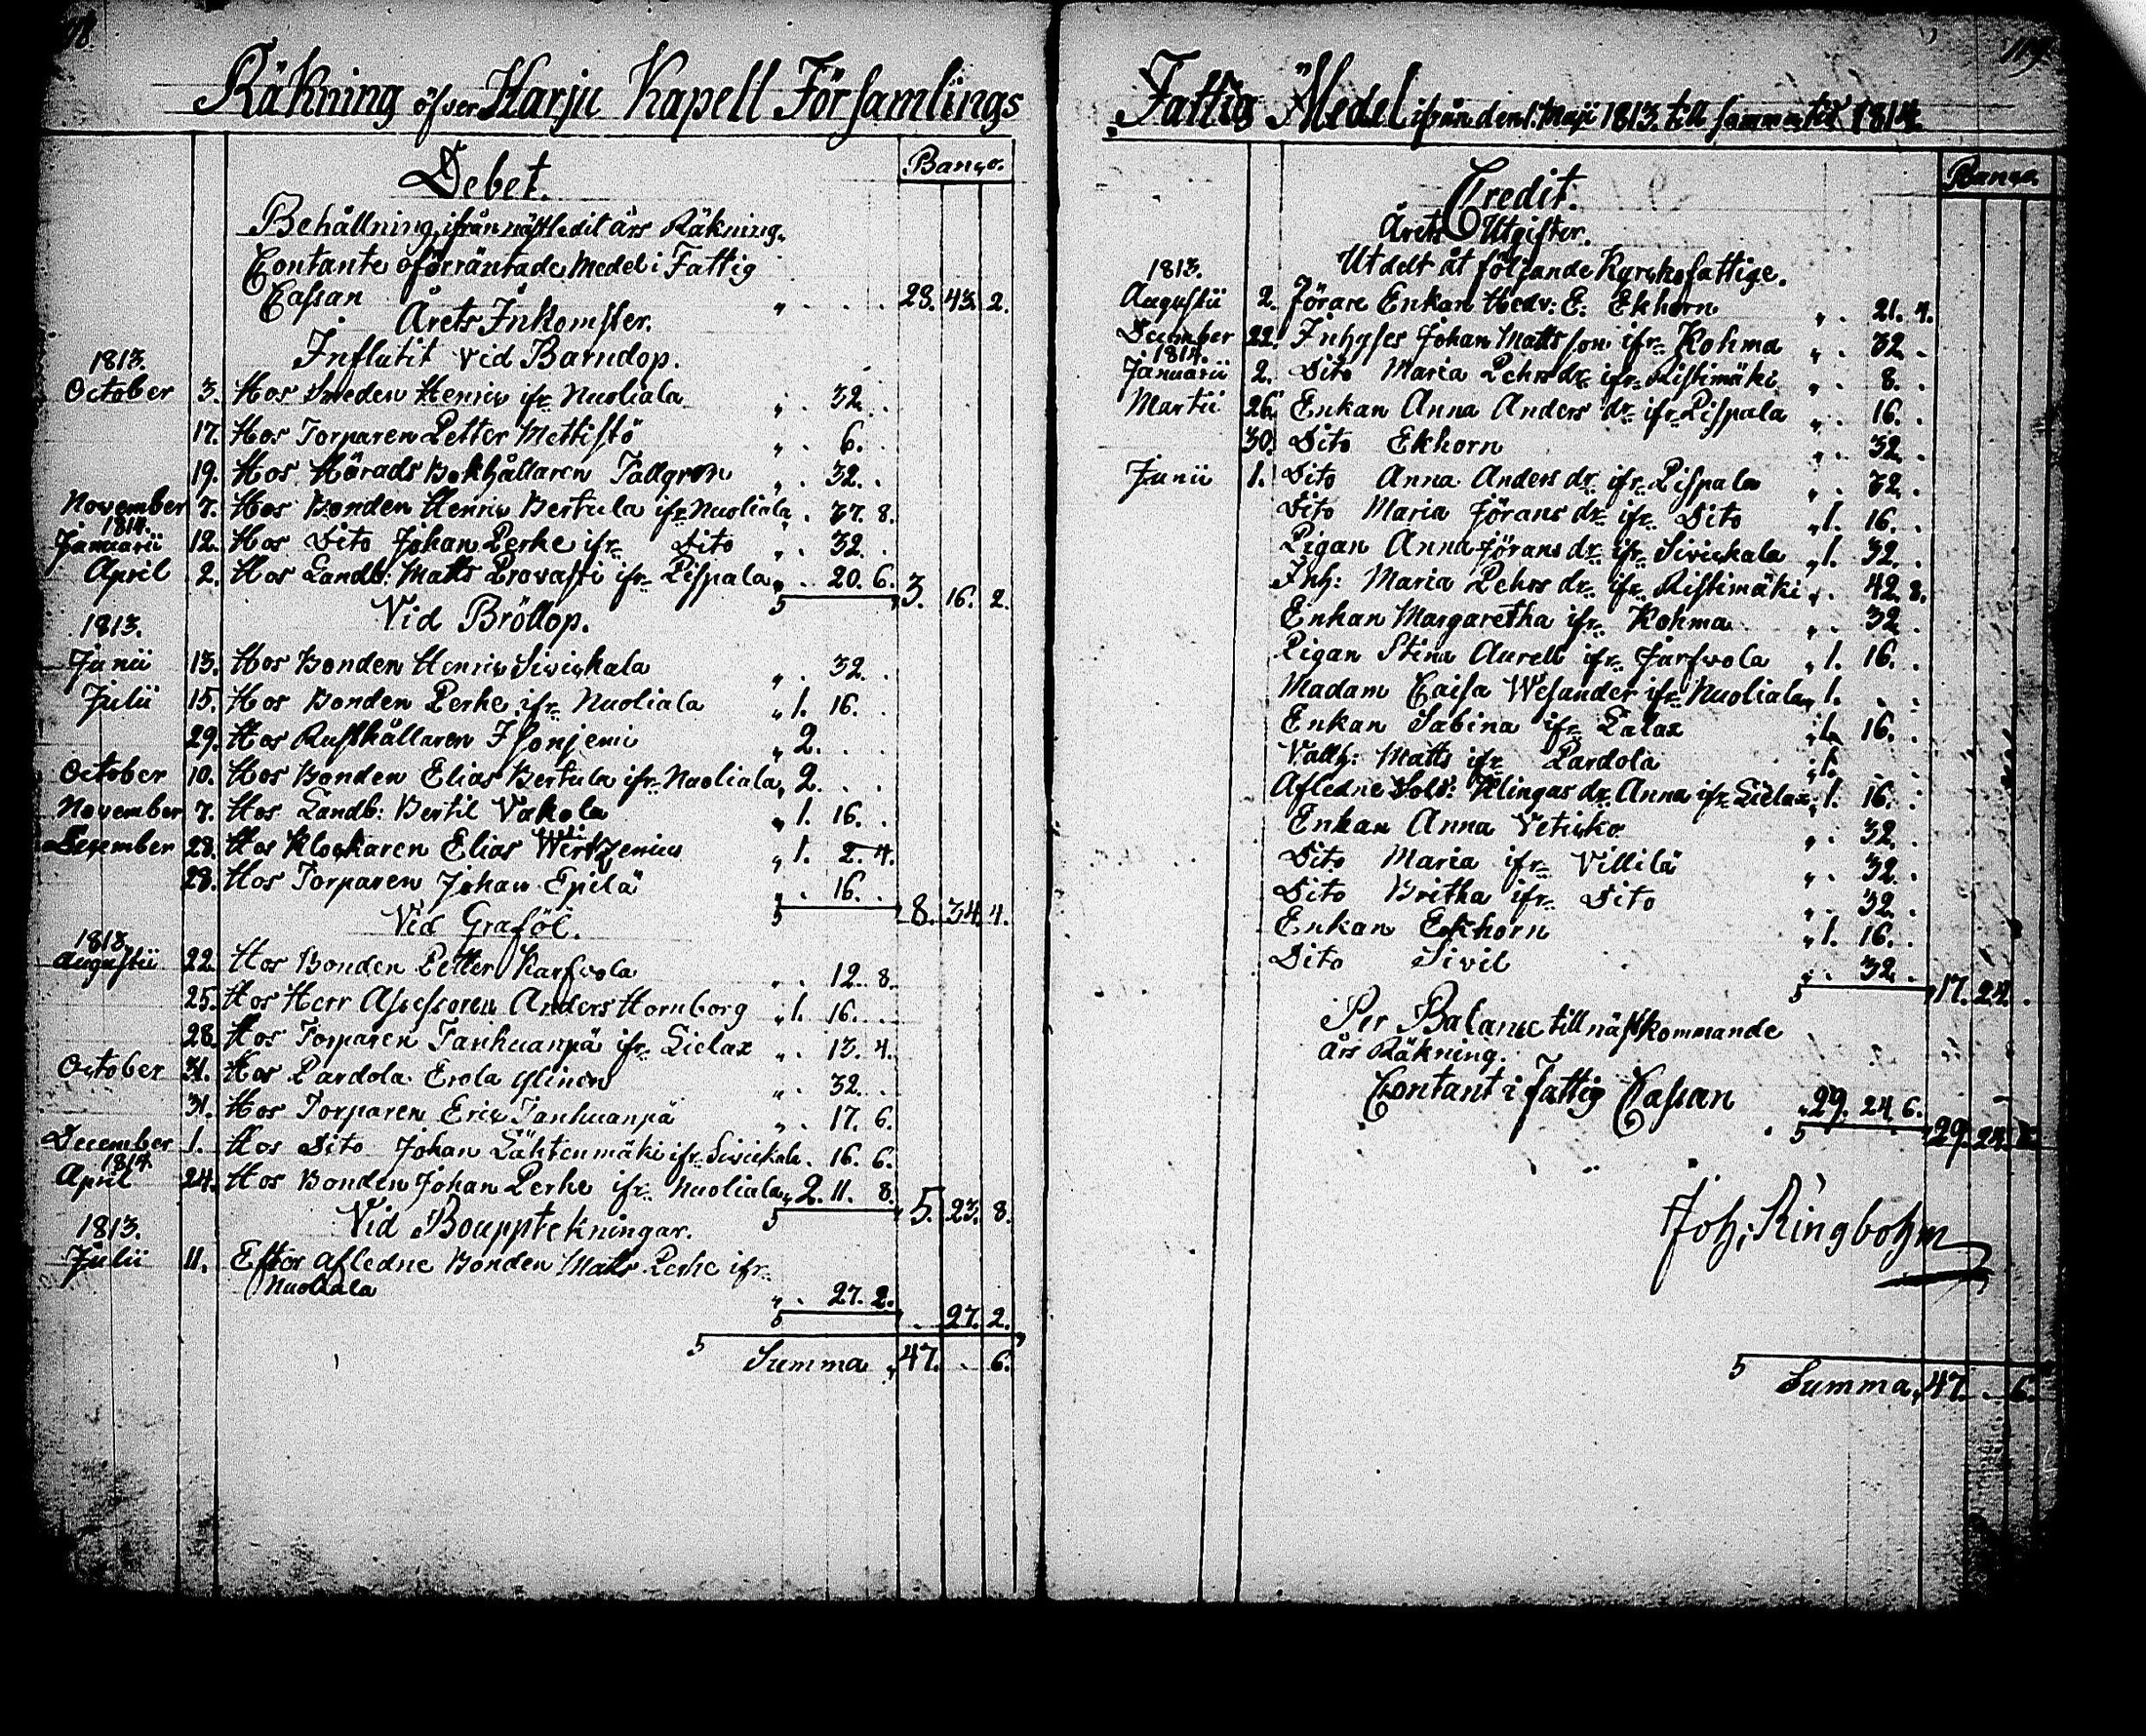 Räkning öfver Harju Kapell Församlings
Debet.
Banco.
Behållning ifrån näst ledit års Räkning.
Contante oförräntade Medel i Fattig
Cassan " . . . 28. 43. 2.
Årets Inkomster.
Influtit vid Barndop.
1813.
October 3. Hos Smeden Henric ifr. Nuoliala " . 32. .
17. Hos Torparen Petter Mettistö " . 6. .
19. Hos Härads Bokhållaren Tallgren " . 32. .
November 7. Hos Bonden Henric Bertula ifr. Nuoliala " . 37. 8.
1814.
Januarii 12. Hos Dito Johan Perke ifr. Dito " . 32. .
April 2. Hos Landb: Matts Provasti ifr. Pispala " . 20. 6. 3. 16. 2.
Vid Bröllop.
1813.
Junii 13. Hos Bonden Henric Sivickala " . 32. .
Julii 15. Hos Bonden Perke ifr. Nuoliala " 1. 16. .
29. Hos Rusthållaren Isonjemi " 2. . .
October 10. Hos Bonden Elias Bertula ifr. Nuoliala " 2. . .
November 7. Hos Landb: Bertil Vakola " 1. 16. .
December 28. Hos Klockaren Elias Wirtzenius " 1. 2. 4.
28. Hos Torparen Johan Epilä " . 16. . 8. 34. 4.
Vid Graföl.
1813.
Augustii 22. Hos Bonden Petter Karfvola " . 12. 8.
25. Hos Herr Assessoren Anders Hornborg " 1. 16. .
28. Hos Torparen Tanhuanpä ifr. Lielax " . 13. 4.
October 31. Hos Pardola Erola Ylinen " . 32. .
31. Hos Torparen Eric Tanhuanpä " . 17. 6.
December 1. Hos Dito Johan Lähtenmäki ifr. Sivickala . 16. 6.
1814.
April 24. Hos Bonden Johan Perke ifr. Nuoliala " 2. 11. 8. 5. 23. 8.
Vid Bouppteckningar.
1813.
Julii 11. Efter Afledne Bonden Matts Perke ifr.
Nuoliala " . 27. 2. . 27. 2.
Summa " 47. . 6.
119.
Fattig Medel ifrån den 1. Maji 1813. till samma tid 1814.
Credit.
Banco.
Årets Utgifter.
Utdelt åt följande Kyrckofattige.
1813.
Augustii 2. Förare Enkan Hedv: E: Ekhorn " . 21. 4.
December 22. Inhyses Johan Matts son ifr. Kohma " . 32. .
1814.
Januarii 2. Dito Maria Pehrs dr. ifr. Ristimäki " . 8. .
Martii 26. Enkan Anna Anders dr. ifr. Pispala " . 16. .
30. Dito Ekhorn " . 32. .
Junii 1. Dito Anna Anders dr. ifr. Pispala " . 32. .
Dito Maria Jörans dr. ifr. Dito " 1. 16. .
Pigan Anna Jörans dr. ifr. Sivickala " 1. 32. .
Inh: Maria Pehrs dr. ifr. Ristimäki " . 42. 8.
Enkan Margaretha ifr. Kohma " . 32. .
Pigan Stina Aurell ifr. Järfvola " 1. 16. .
Madam Caisa Wesander ifr. Nuoliala " 1. . .
Enkan Sabina ifr. Lalax " 1. 16. .
Vallh: Matts ifr. Pardola " 1. . .
Afledne Sold: Klingas dr. Anna ifr. Lielax " 1. 16. .
Enkan Anna Veticko " . 32. .
Dito Maria ifr. Villilä " . 32. .
Dito Britha ifr. Dito " . 32. .
Enkan Ekhorn " 1. 16. .
Dito Sivil " . 32. . 17. 24. .
Per Balance till nästkommande
års Räkning.
Contant i Fattig Cassan " 29. 24. 6. 29. 24. 6.
Joh. Ringbohm
Summa " 47. . 6.